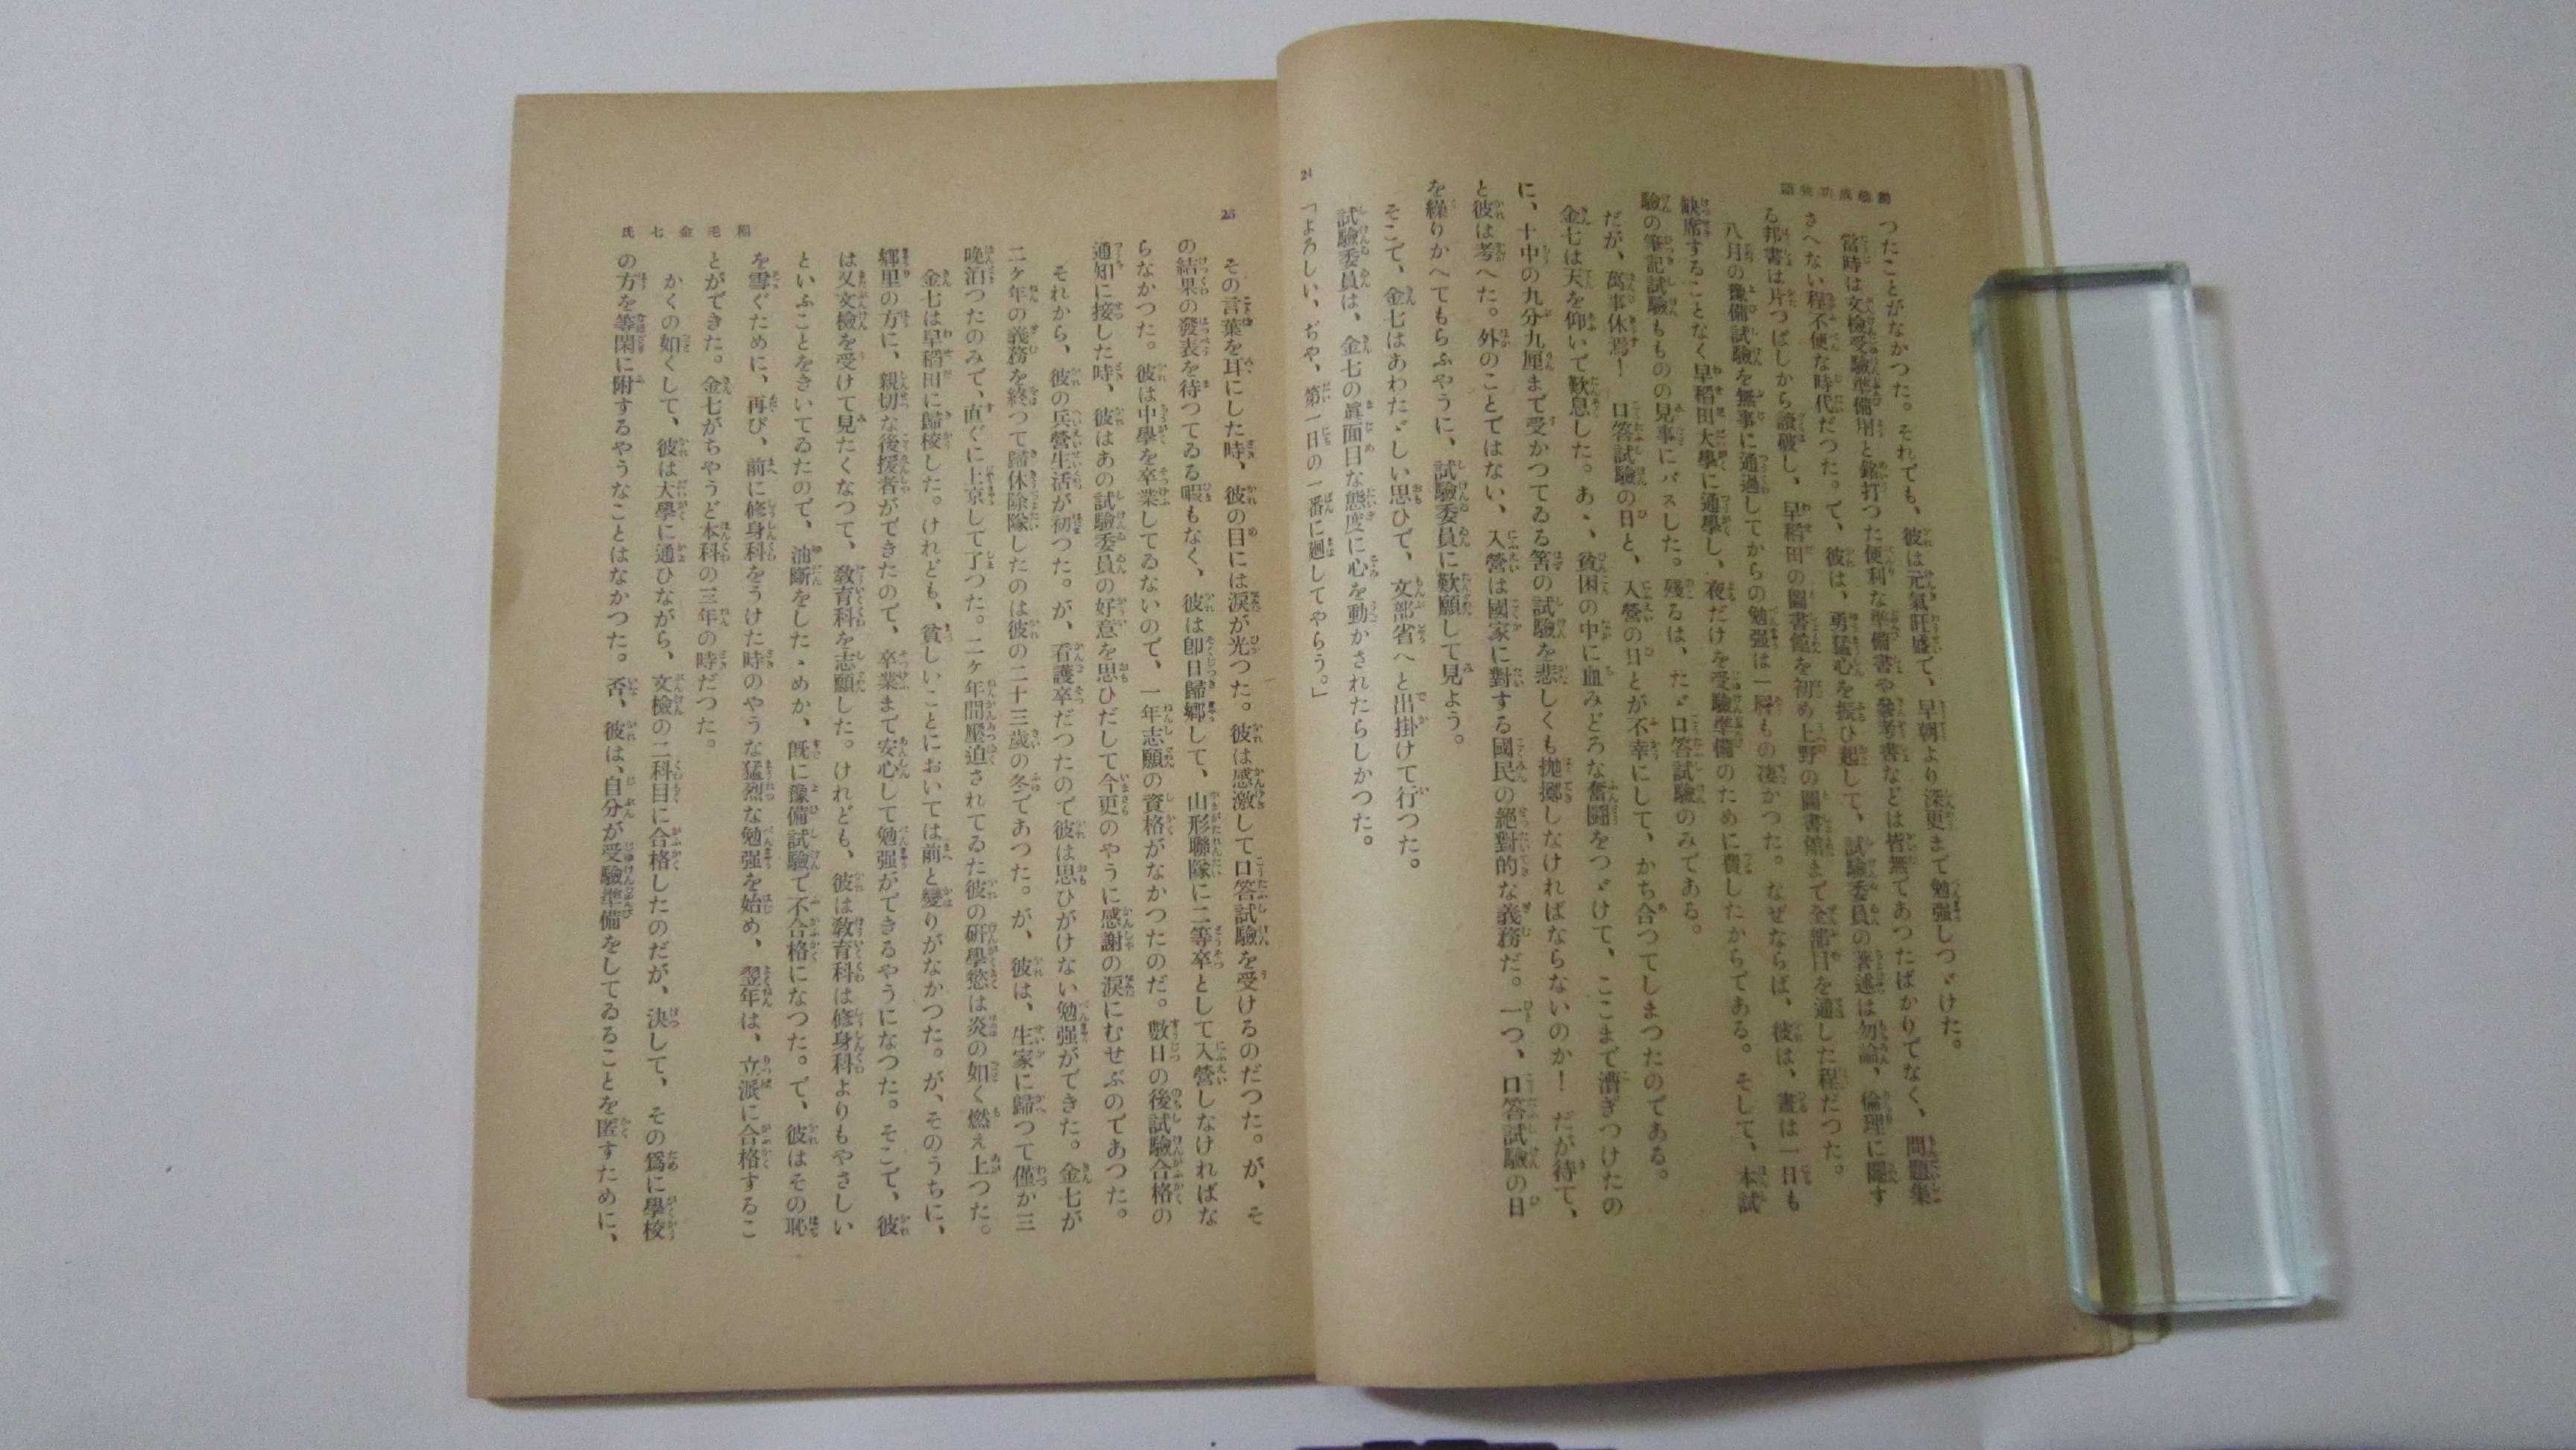 24
つたことがなかつた。それでも、彼は元氣旺盛で、早朝より深更まで勉强しつゞけた。
當時は文檢受驗準備用と銘打つた便利な準備書や參考書などは皆無であつたばかりでなく、問題集
さへない程不便な時代だつた。で、彼は、勇猛心を振ひ起して、試驗委員の著述は勿論、倫理に關す
る邦書は片つぱしから讀破し、早稻田の圖書館を初め上野の圖書館まで全部目を通した程だつた。
八月の豫備試驗を無事に通過してからの勉强は一層もの凄かつた。なぜならば、彼は、晝は一日も
缺席することなく早稻田大學に通學し、夜だけを受驗準備のために費したからである。そして、本試
驗の筆記試驗もものの見事にパスした。殘るは、たゞ口答試驗のみである。
だが、萬事休焉！　口答試驗の日と、入營の日とが不幸にして、かち合つてしまつたのである。
金七は天を仰いで歎息した。あゝ、貧困の中に血みどろな奮鬪をつゞけて、ここまで漕ぎつけたの
に、十中の九分九厘まで受かつてゐる筈の試驗を悲しくも抛擲しなければならないのか！　だが待て、
と彼は考へた。外のことではない、入營は國家に對する國民の絕對的な義務だ。一つ、口答試驗の日
を繰りかへてもらふやうに、試驗委員に歎願して見よう。
そこで、金七はあわたゞしい思ひで、文部省へと出掛けて行つた。
試驗委員は、金七の眞面目な態度に心を動かされたらしかつた。
「よろしい、ぢや、第一日の一番に廻してやらう。」
25
稻毛金七氏
その言葉を耳にした時、彼の目には淚が光つた。彼は感激して口答試驗を受けるのだつた。が、そ
の結果の發表を待つてゐる暇もなく、彼は卽日歸鄉して、山形聯隊に二等卒として入營しなければな
らなかつた。彼は中學を卒業してゐないので、一年志願の資格がなかつたのだ。數日の後試驗合格の
通知に接した時、彼はあの試驗委員の好意を思ひだして今更のやうに感謝の淚にむせぶのであつた。
それから、彼の兵營生活が初つた。が、看護卒だつたので彼は思ひがけない勉强ができた。金七が
二ヶ年の義務を終つて歸休除隊したのは彼の二十三歲の冬であつた。が、彼は、生家に歸つて僅か三
晩泊つたのみで、直ぐに上京して了つた。二ヶ年間壓迫されてゐた彼の硏學慾は炎の如く燃え上つた。
金七は早稻田に歸校した。けれども、貧しいことにおいては前と變りがなかつた。が、そのうちに、
鄉里の方に、親切な後援者ができたので、卒業まで安心して勉强ができるやうになつた。そこで、彼
は又文檢を受けて見たくなつて、敎育科を志願した。けれども、彼は敎育科は修身科よりもやさしい
といふことをきいてゐたので、油斷をしたゝめか、旣に豫備試驗で不合格になつた。で、彼はその恥
を雪ぐために、再び、前に修身科をうけた時のやうな猛烈な勉强を始め、翌年は、立派に合格するこ
とができた。金七がちやうど本科の三年の時だつた。
かくの如くして、彼は大學に通ひながら、文檢の二科目に合格したのだが、決して、その爲に學校
の方を等閑に附するやうなことはなかつた。否、彼は、自分が受驗準備をしてゐることを匿すために、